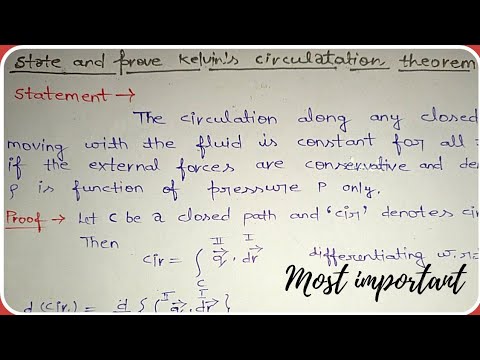 state and prove kelvin's circulatation theorem
Statement →
The circulation along any closed
moving with the fluid is constant for all
if the external forces are conservative and de
ρ is function of pressure P only.
Proof → Let C be a closed path and 'cir' denotes cir
Then
II I
cir = ∫ q⃗. dr⃗ differentiating w.r.
C
Most important
d(cir) = d ∫ { q⃗. dr⃗ }